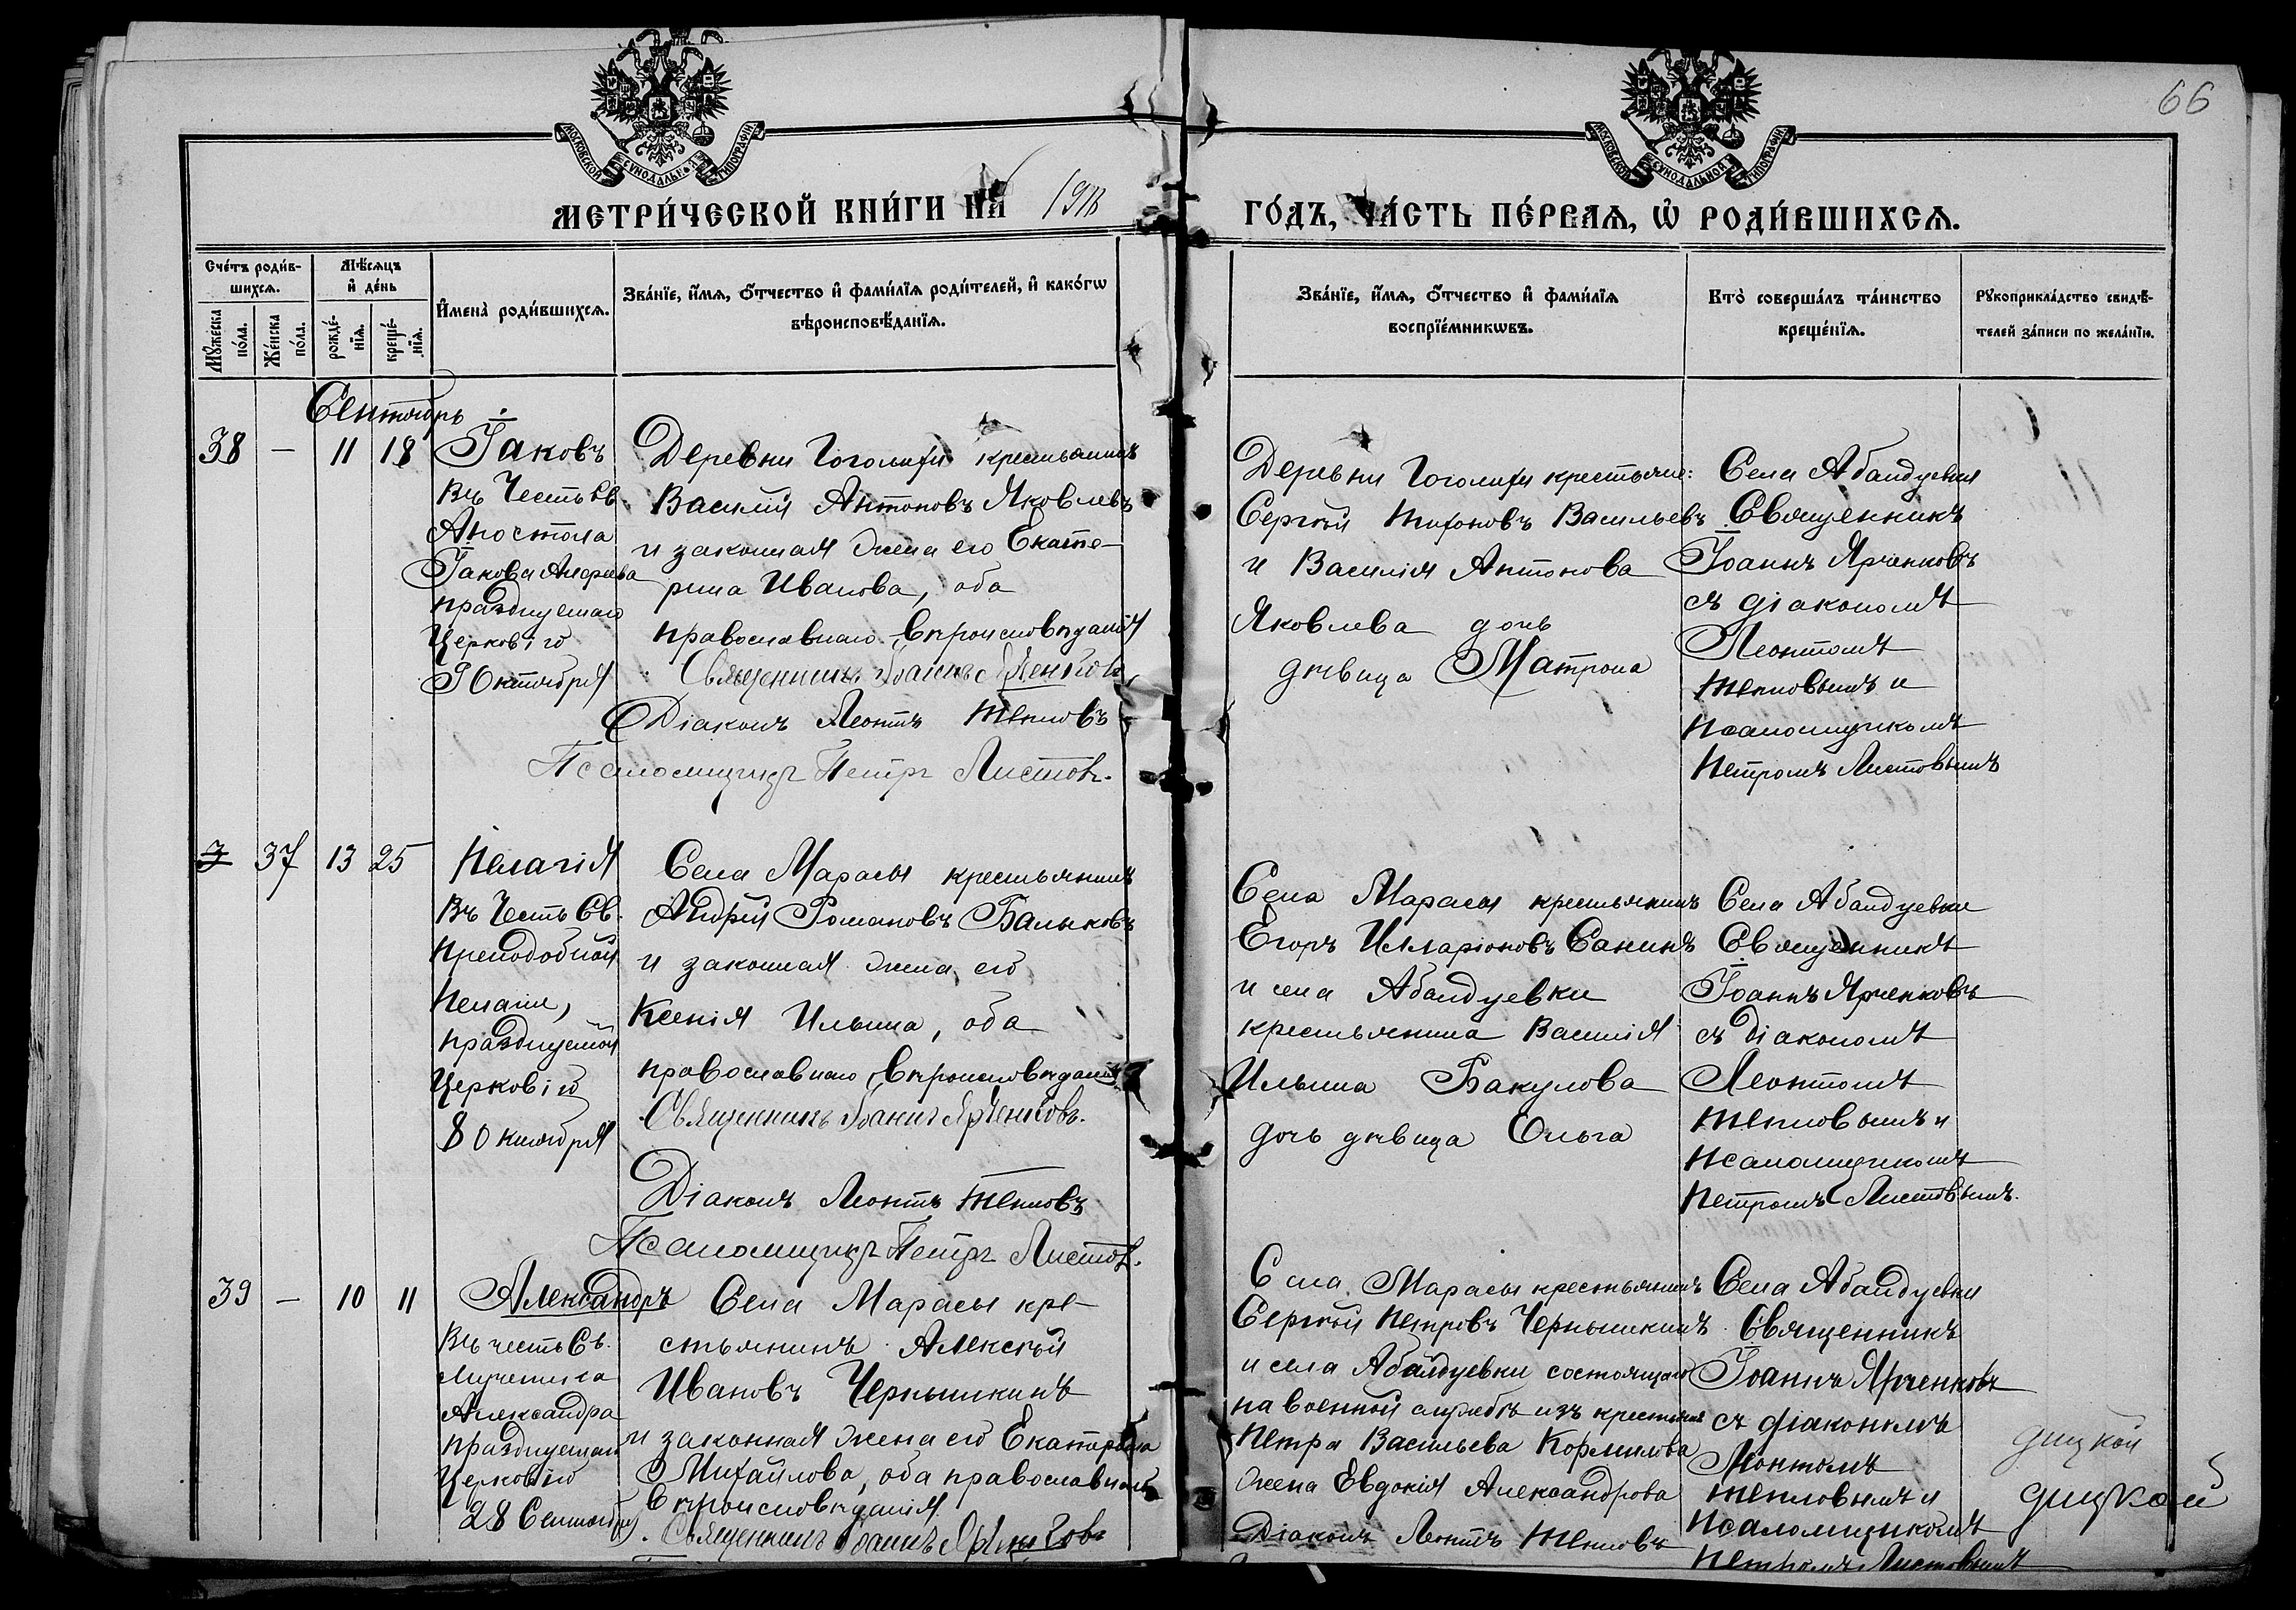 66
МОСКОВСКОЙ СѴНОДАЛЬНОЙ ТИПОГРАФІИ
МОСКОВСКОЙ СѴНОДАЛЬНОЙ ТИПОГРАФІИ
МЕТРИ́ЧЕСКОЙ КНИ́ГИ НА̀
ГО́ДЪ, ЧА́СТЬ ПЕ́РВАѦ, Ѡ҆ РОДИ́ВШИХСѦ.
Сче́тъ роди́в-
шихсѧ.
Мꙋ́жеска по́ла.
Же́нска по́ла.
Мѣ́сѧцъ
и҆ де́нь
рожде́-
нїѧ.
креще́-
нїѧ.
И҆мена̀ роди́вшихсѧ.
Зва́нїе, и҆́мѧ, ѻ҆́тчество и҆ фами́лїѧ роди́телей, и҆ како́гѡ
вѣроисповѣ́данїѧ.
Зва́нїе, и҆́мѧ, ѻ҆́тчество и҆ фами́лїѧ
воспрїе́мникѡвъ.
Кто̀ соверша́лъ та́инство
креще́нїѧ.
Рꙋкоприкла́дство свидѣ́-
телей за́писи по жела́нїю.
Сентябрь
38 — 11 18
Іаковъ
въ Честь Св.
Апостола
Іакова Алфеева
празднуемаго
Церковію
9 Октября
Деревни крестьянинъ
Василій Антоновъ Яковлевъ
и законная жена его Екате-
рина Иванова, оба
православнаго вѣроисповѣданія
Священникъ Іоаннъ Ярченковъ
Діаконъ Леонтъ Тепловъ
Псаломщикъ Петръ Листовъ.
Деревни крестьяне:
Сергѣй Тихоновъ Васильевъ
и Василія Антонова
Яковлева дочь
дѣвица Матрона
Села Абандуевки
Священникъ
Іоаннъ Ярченковъ
съ діакономъ
Леонтомъ
Тепловымъ и
псаломщикомъ
Петромъ Листовымъ
3 37 13 25
Пелагія
въ Честь Св.
преподобной
Пелагіи,
празднуемой
Церковію
8 Октября
Села Марасы крестьянинъ
Андрей Романовъ Балыковъ
и законная жена его
Ксенія Ильина, оба
православнаго вѣроисповѣданія
Священникъ Іоаннъ Ярченковъ.
Діаконъ Леонтъ Тепловъ
Псаломщикъ Петръ Листовъ.
Села Марасы крестьянинъ
Егоръ Илларіоновъ Санинъ
и села Абандуевки
крестьянина Василія
Ильина Бакулова
дочь дѣвица Ольга
Села Абандуевки
Священникъ
Іоаннъ Ярченковъ
съ діакономъ
Леонтомъ
Тепловымъ и
псаломщикомъ
Петромъ Листовымъ.
39 — 10 11
Александръ
въ честь Св.
мученика
Александра
празднуемаго
Церковію
28 Сентября
Села Марасы кре-
стьянинъ Алексѣй
Ивановъ Чернышкинъ
и законная жена его Екатерина
Михайлова, оба православнаго
вѣроисповѣданія.
Священникъ Іоаннъ Ярченковъ
Села Марасы крестьянинъ
Сергѣй Петровъ Чернышкинъ
и села Абандуевки состоящаго
на военной службѣ изъ крестьянъ
Петра Васильева Кормилова
жена Евдокія Александрова
Діаконъ Леонтъ Тепловъ
Села Абандуевки
Священникъ
Іоаннъ Ярченковъ
съ діакономъ
Леонтомъ
Тепловымъ и
псаломщикомъ
Петромъ Листовымъ